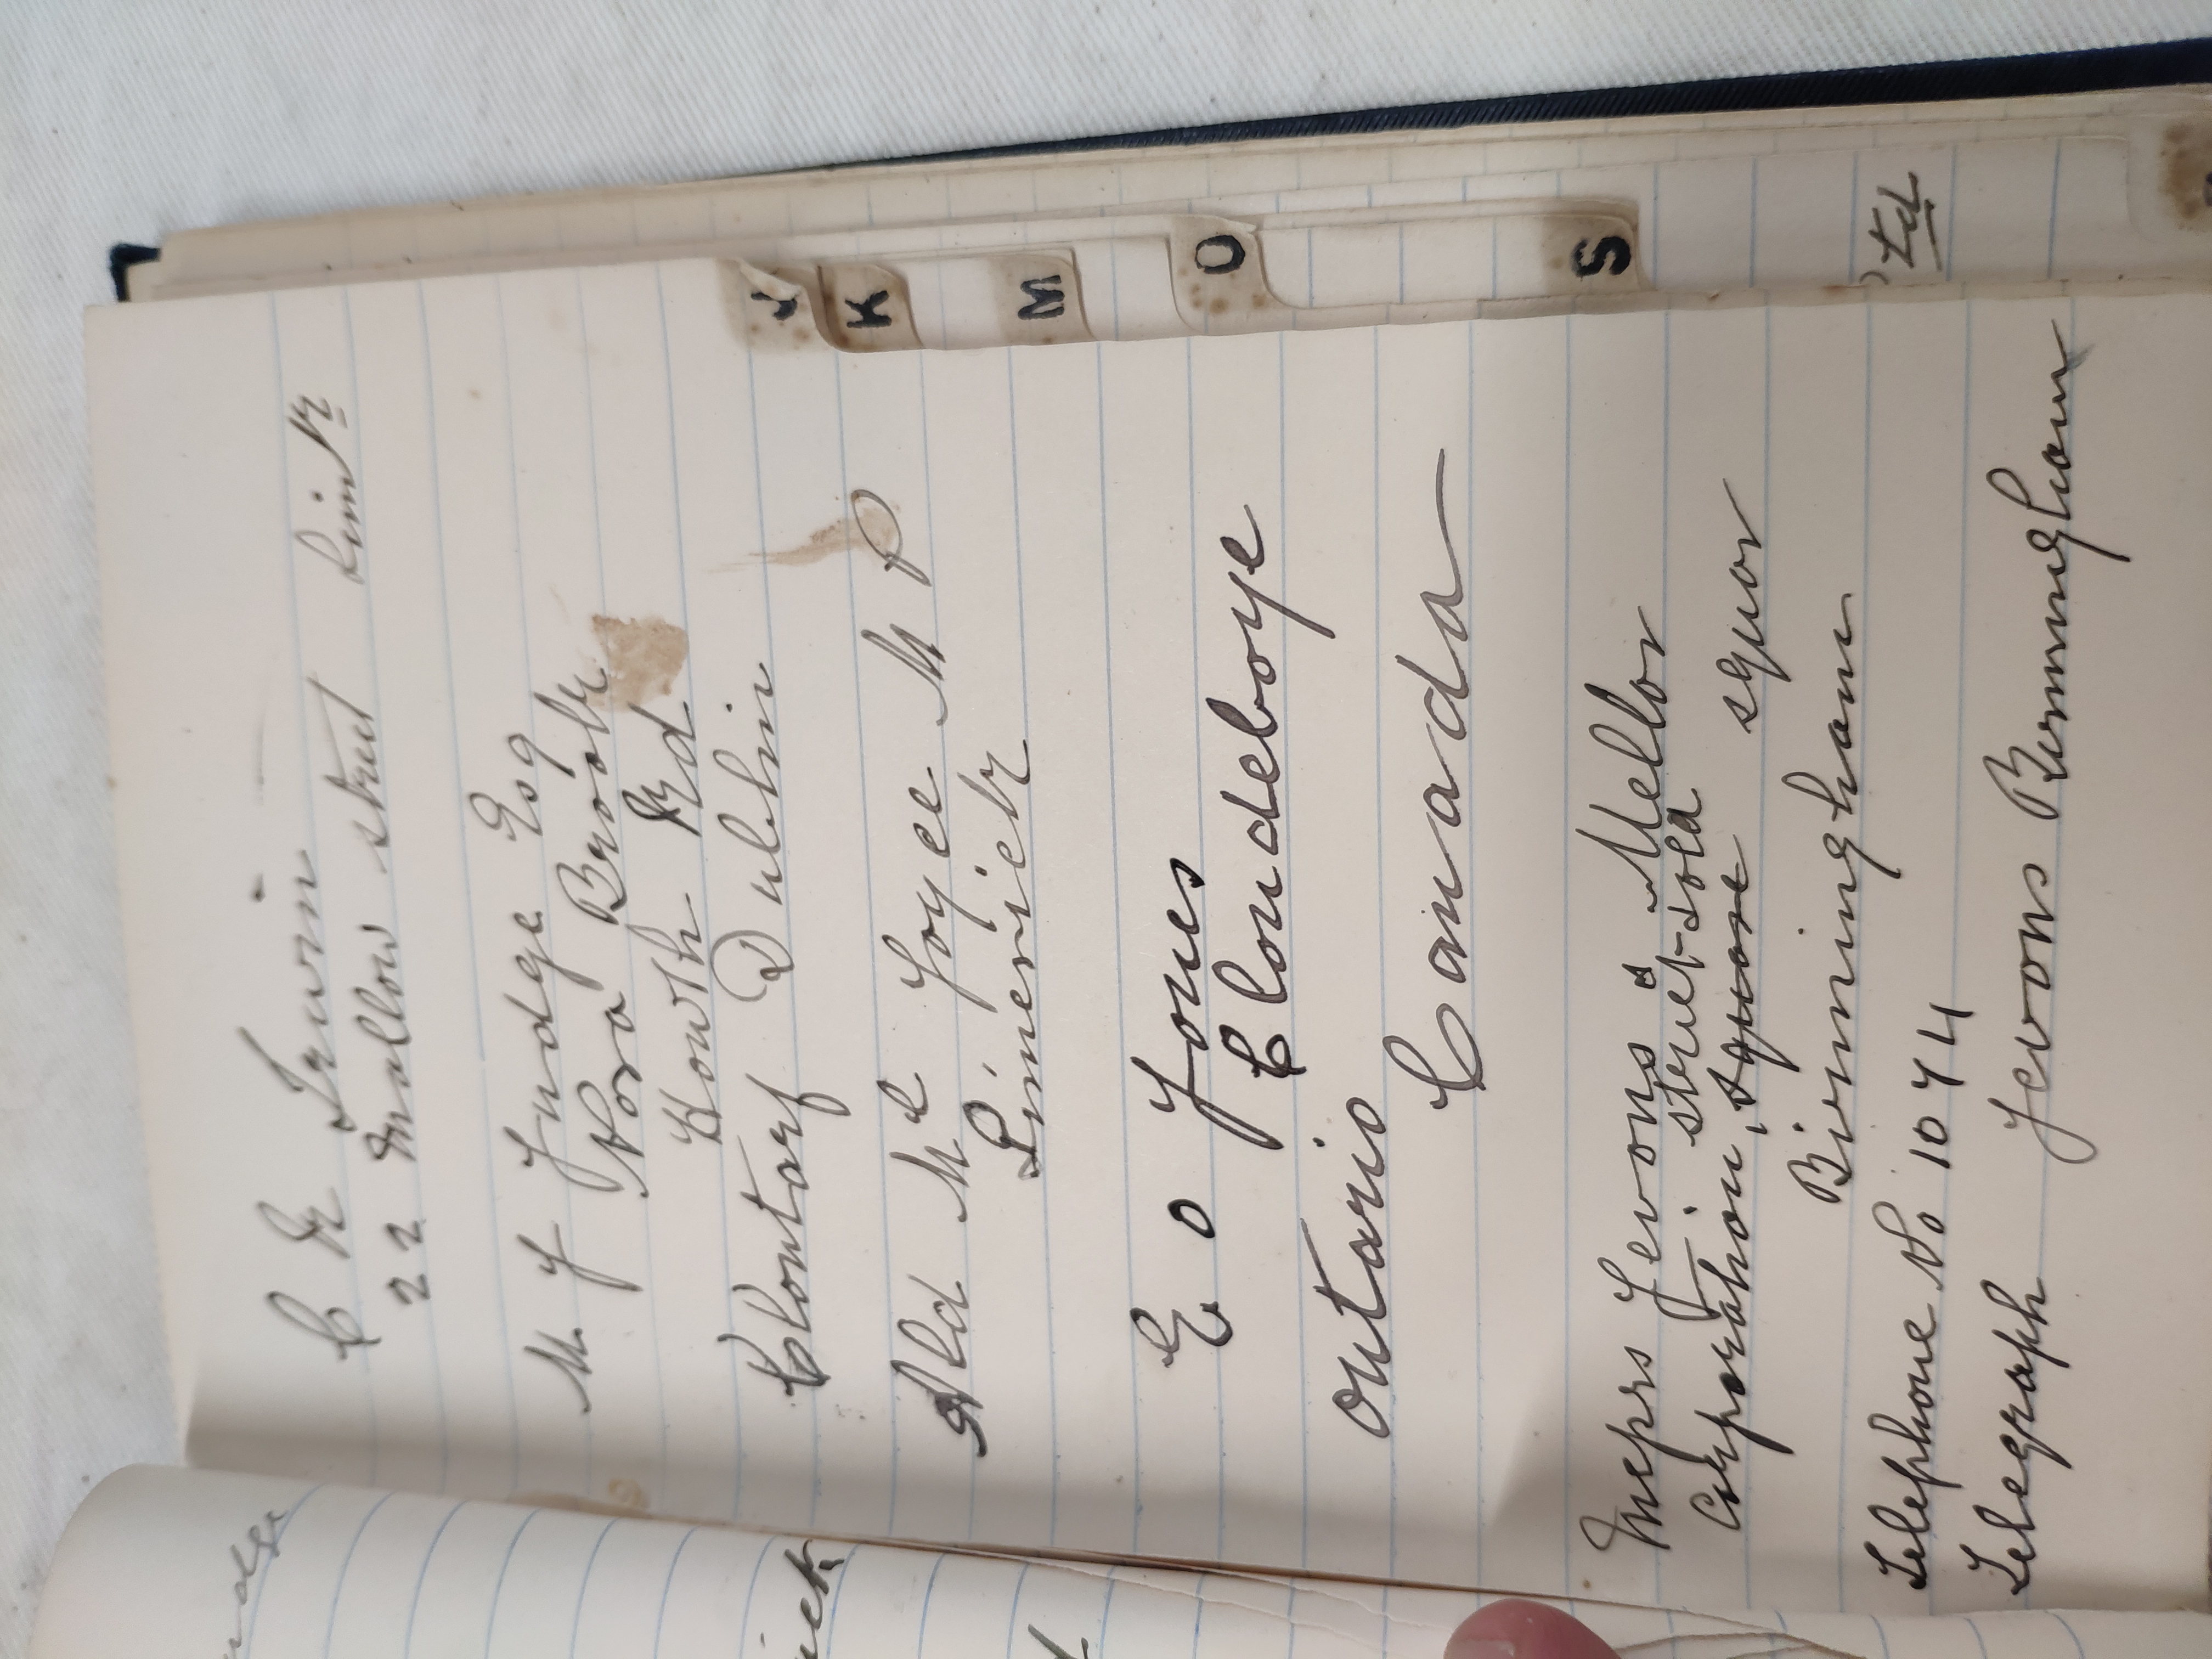 C R Irwin
22 Mallow street Limk
M. J Judge Esq
Nora Brook
Howth Rd
Clontarf Dublin
Ald Mc Joyce M P
Limerick
E O Jones
Clondeboye
Ontario
Canada
Messrs Jevons & Mellor
street-sold
Corporation, square squar
Birmingham
Telephone No 1044
Telegraph Jevons Birmingham
J
K
M
O
S
Ltd